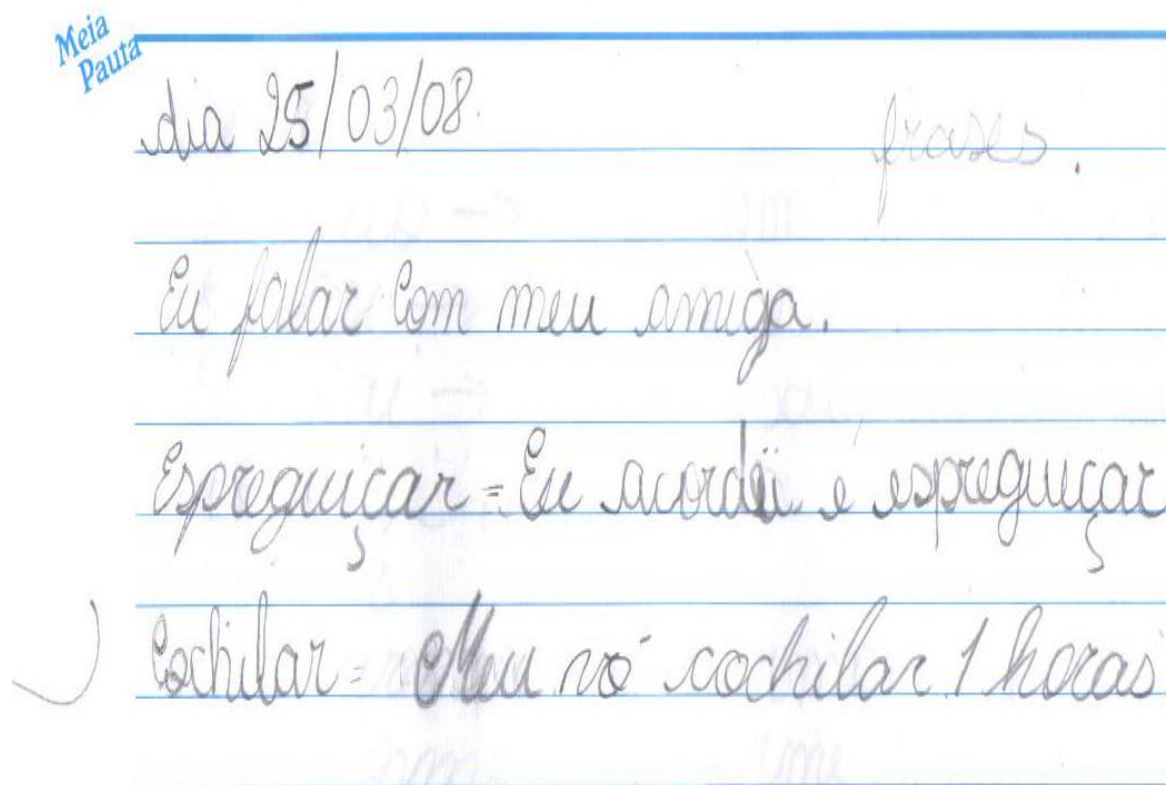 Meia
Pauta
dia 25/03/08. frases.
Eu falar com meu amiga.
Espreguiçar = Eu acordei é espreguiçar
Cochilar = Meu vó cochilar 1 horas